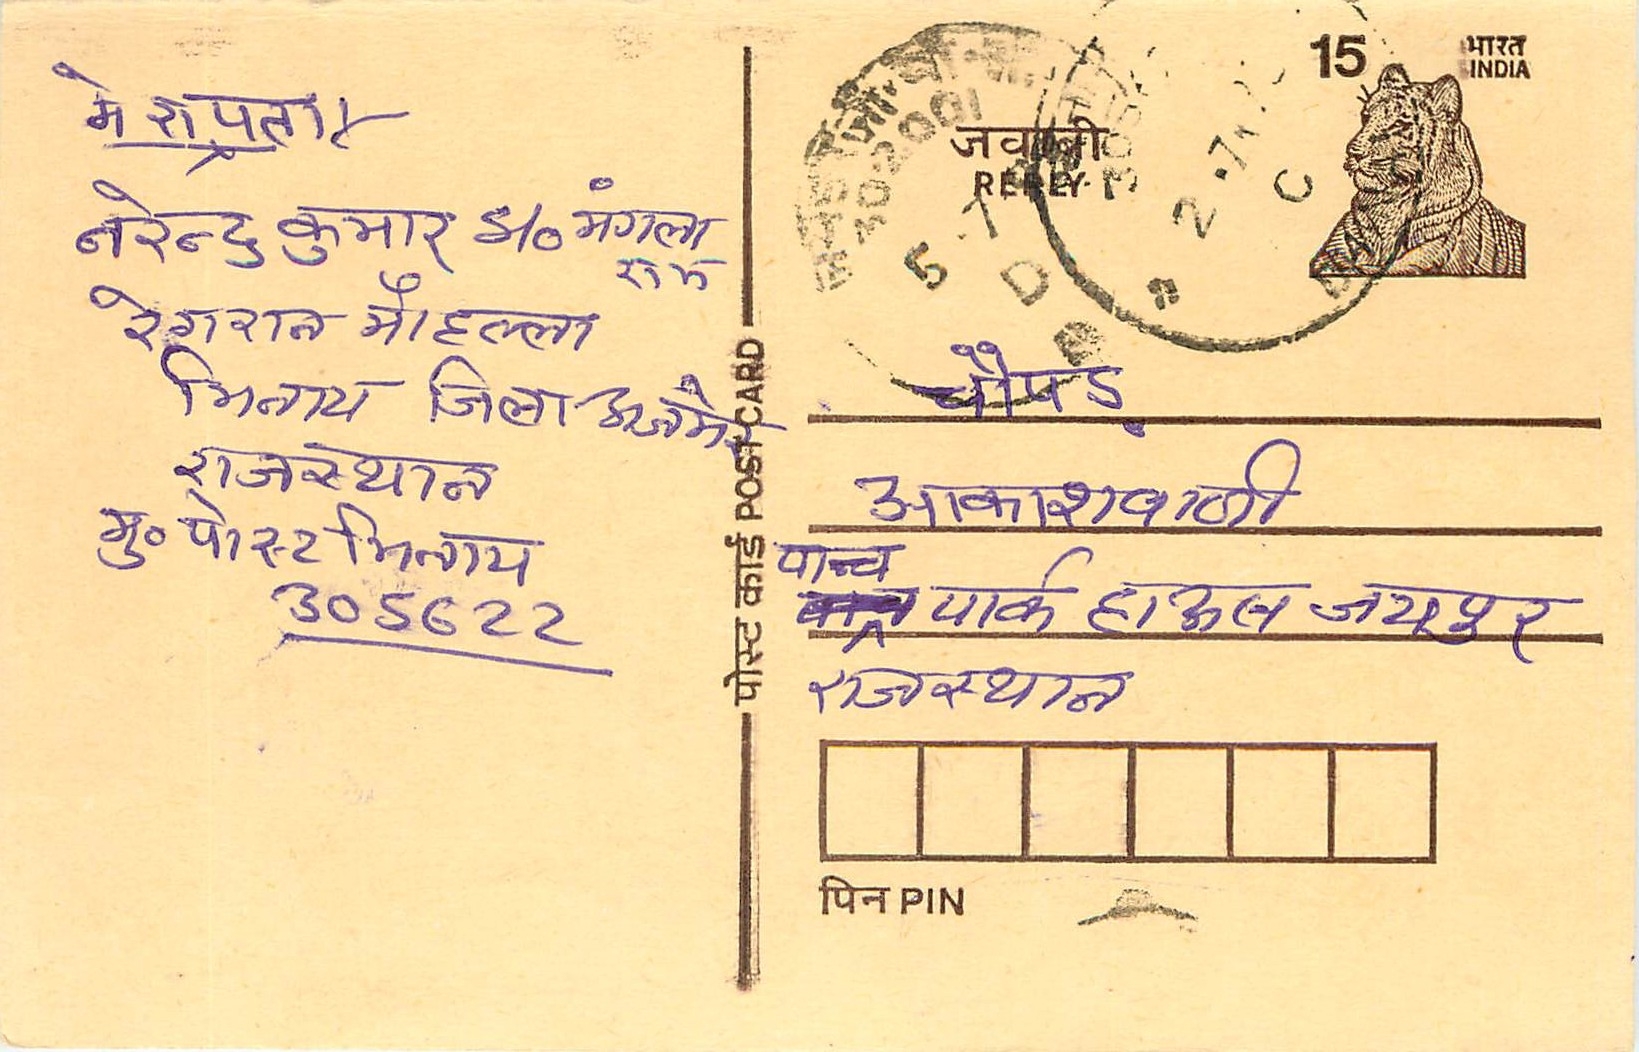 मेरा पता:-
नरेन्द्र कुमार S/o मंगला
राम
रेगरान मौहल्ला
भिनाय जिला अजमेर
राजस्थान
मु० पोस्ट भिनाय
305622
पोस्ट कार्ड POST CARD
15
भारत
INDIA
जवाबी
REPLY
302001
चौपड़
आकाशवाणी
पान्च
पार्क हाऊस जयपुर
राजस्थान
पिन PIN